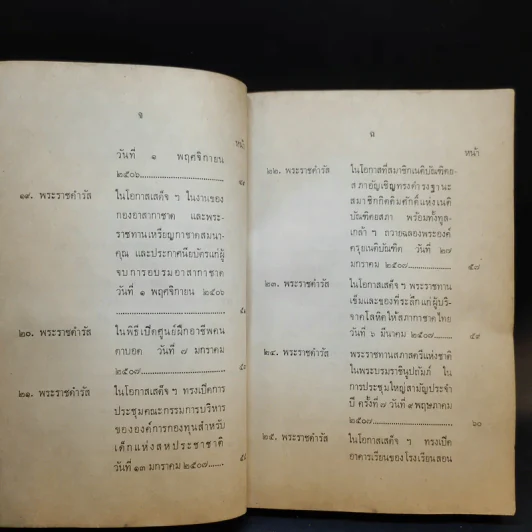 จ
หน้า
วันที่ ๑ พฤศจิกายน
๒๕๐๖
๑๙. พระราชดำรัส ในโอกาสเสด็จ ฯ ในงานของ
กองอาสากาชาด และพระ-
ราชทานเหรียญกาชาดสมนา-
คุณ และประกาศนียบัตรแก่ผู้
จบการอบรมอาสากาชาด
วันที่ ๑ พฤศจิกายน ๒๕๐๖
๒๐. พระราชดำรัส ในพิธีเปิดศูนย์ฝึกอาชีพคน
ตาบอด วันที่ ๗ มกราคม
๒๕๐๗
๒๑. พระราชดำรัส ในโอกาสเสด็จ ฯ ทรงเปิดการ
ประชุมคณะกรรมการบริหาร
ขององค์การกองทุนสำหรับ
เด็กแห่งสหประชาชาติ
วันที่ ๑๓ มกราคม ๒๕๐๗
หน้า
๒๒. พระราชดำรัส ในโอกาสที่สมาชิกเนติบัณฑิตย-
สภาอัญเชิญทรงดำรงฐานะ
สมาชิกกิตติมศักดิ์แห่งเนติ
บัณฑิตยสภา พร้อมทั้งทูล-
เกล้า ฯ ถวายฉลองพระองค์
ครุยเนติบัณฑิต วันที่ ๒๗
มกราคม ๒๕๐๗ ๕๘
๒๓. พระราชดำรัส ในโอกาสเสด็จ ฯ พระราชทาน
เข็มและของที่ระลึกแก่ผู้บริ-
จาคโลหิตให้สภากาชาดไทย
วันที่ ๖ มีนาคม ๒๕๐๗ ๕๙
๒๔. พระราชดำรัส พระราชทานสภาสตรีแห่งชาติ
ในพระบรมราชินูปถัมภ์ ใน
การประชุมใหญ่สามัญประจำ
ปี ครั้งที่ ๗ วันที่ ๙ พฤษภาคม
๒๕๐๗ ๖๐
๒๕. พระราชดำรัส ในโอกาสเสด็จ ฯ ทรงเปิด
อาคารเรียนของโรงเรียนสอน